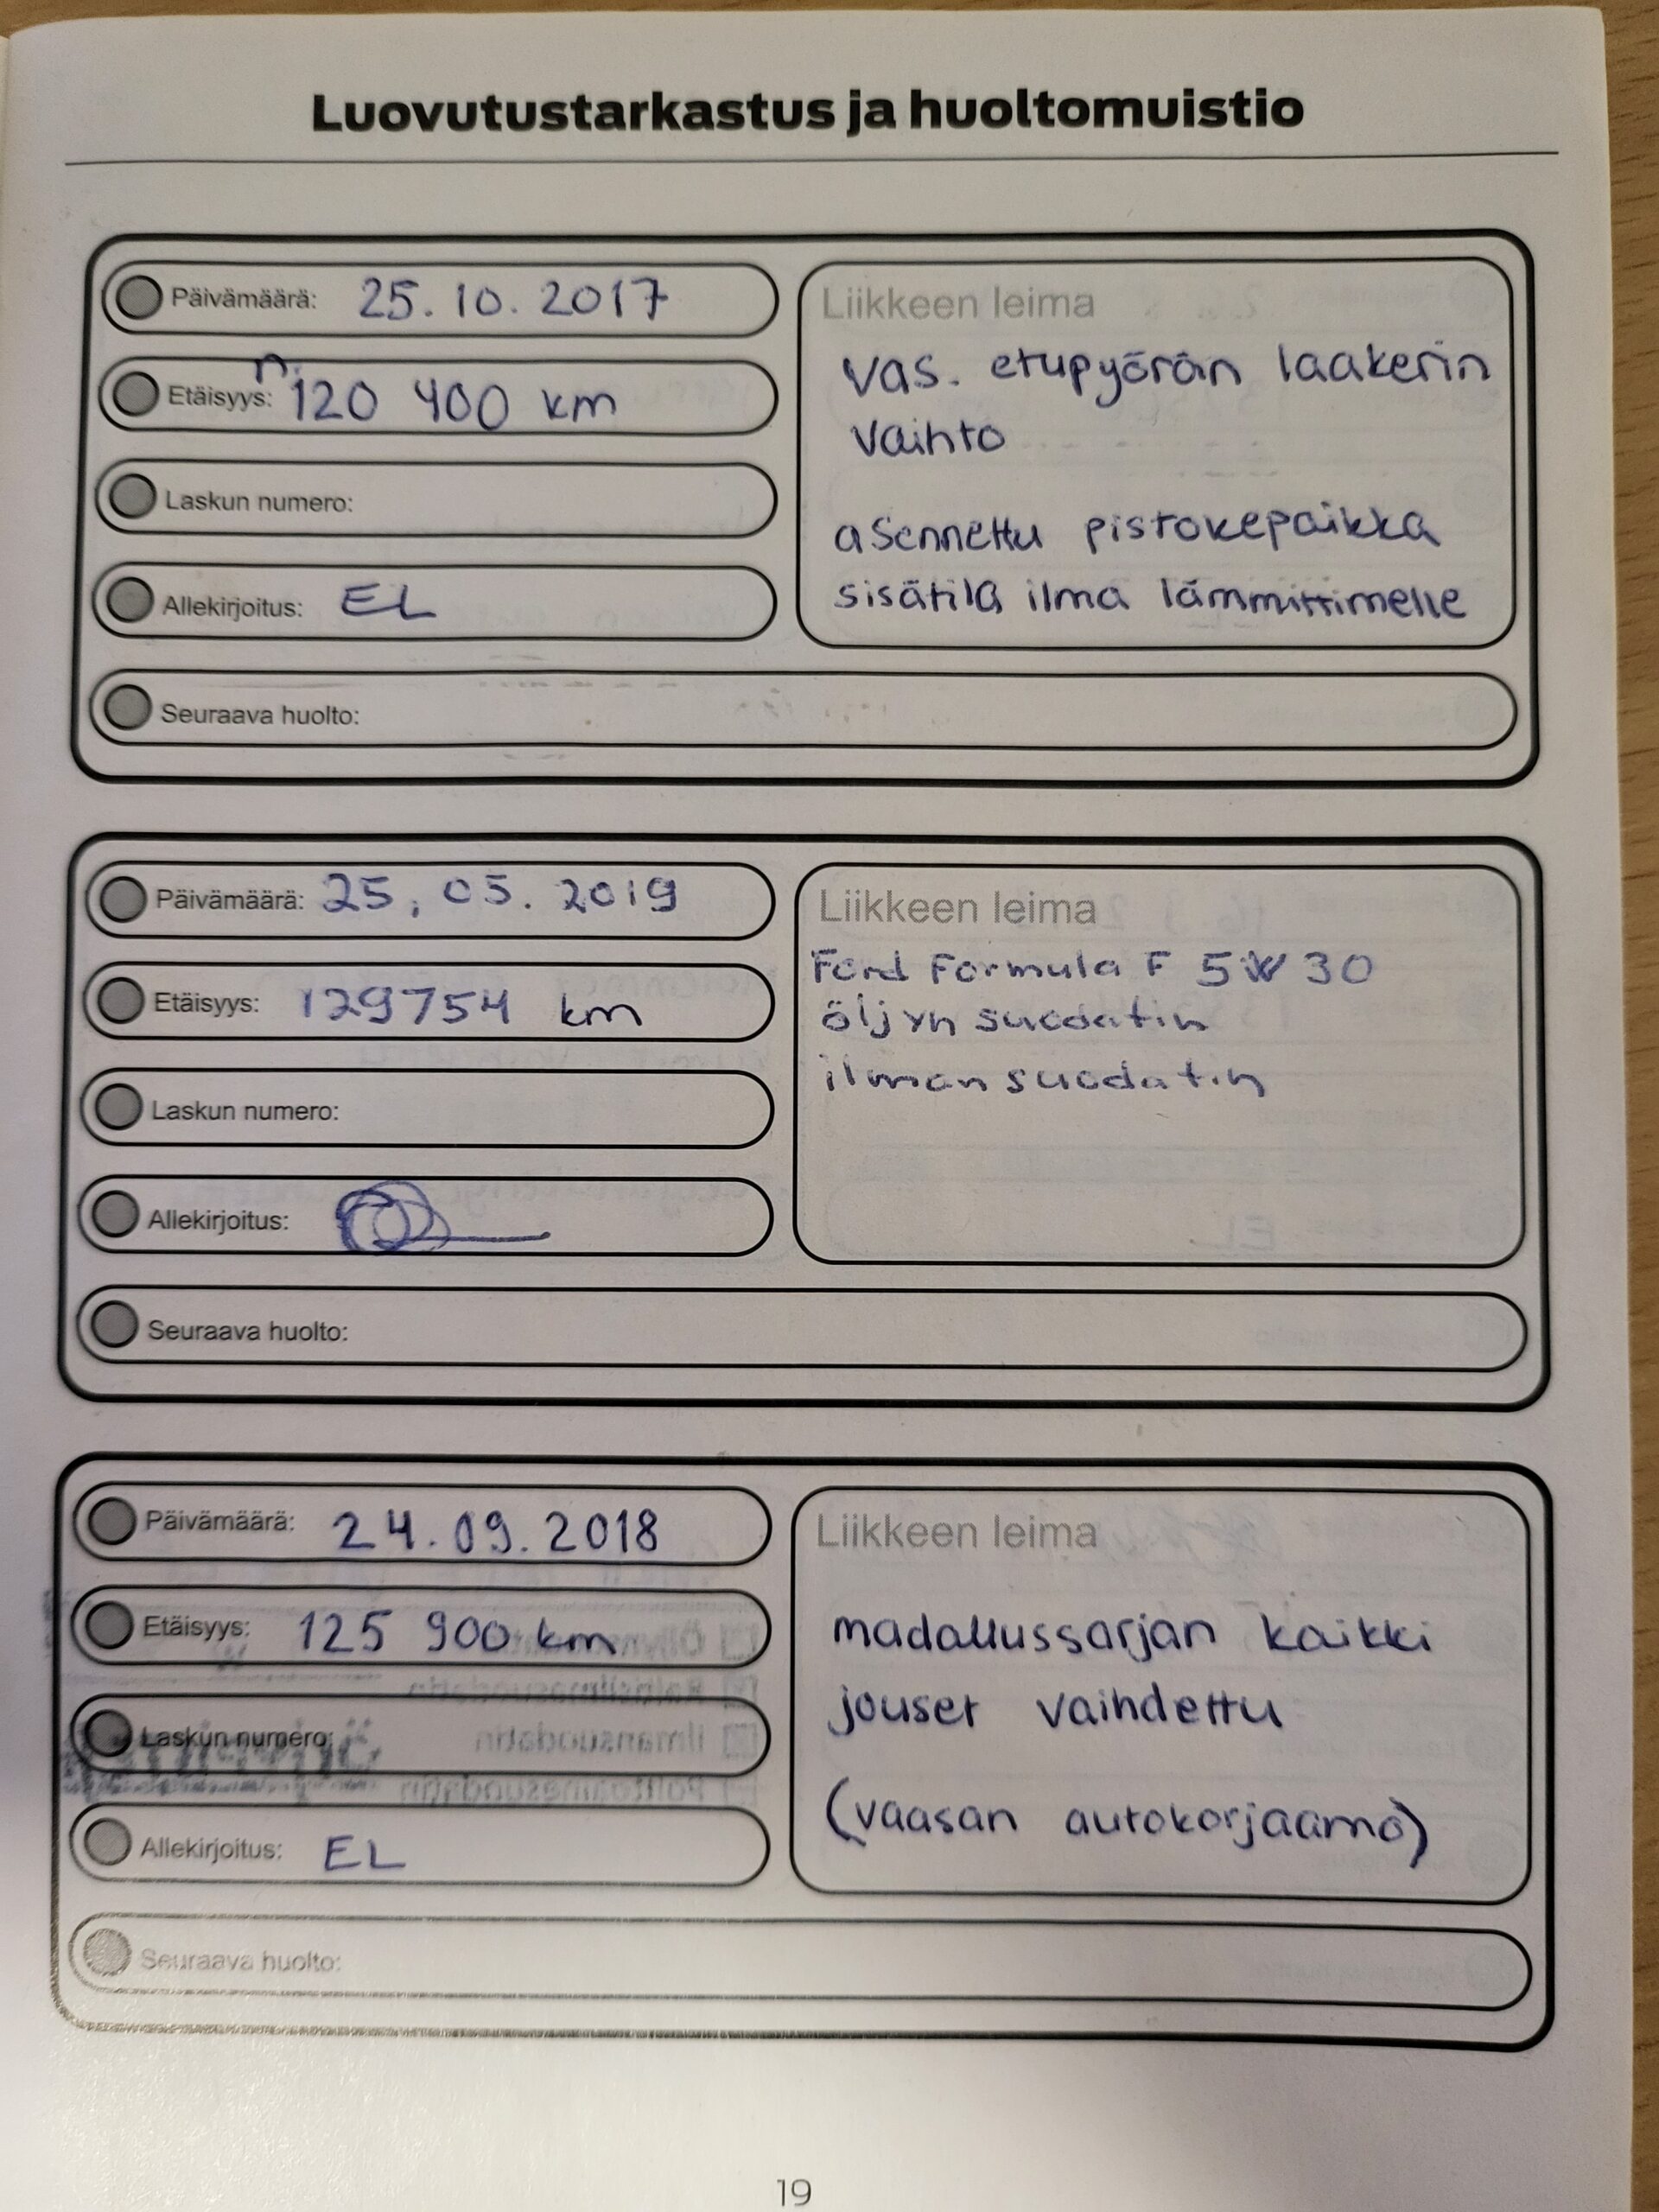 Luovutustarkastus ja huoltomuistio
Päivämäärä: 25.10.2017
Etäisyys: n. 120 400 km
Laskun numero:
Allekirjoitus: EL
Liikkeen leima
vas. etupyörän laakerin
vaihto
asennettu pistokepaikka
sisätila ilma lämmittimelle
Seuraava huolto:
Päivämäärä: 25,05.2019
Etäisyys: 129754 km
Laskun numero:
Allekirjoitus:
Liikkeen leima
Ford Formula F 5W30
öljyn suodatin
ilman suodatin
Seuraava huolto:
Päivämäärä: 24.09.2018
Etäisyys: 125 900 km
Laskun numero:
Allekirjoitus: EL
Liikkeen leima
madallussarjan kaikki
jouset vaihdettu
(vaasan autokorjaamo)
Seuraava huolto:
19